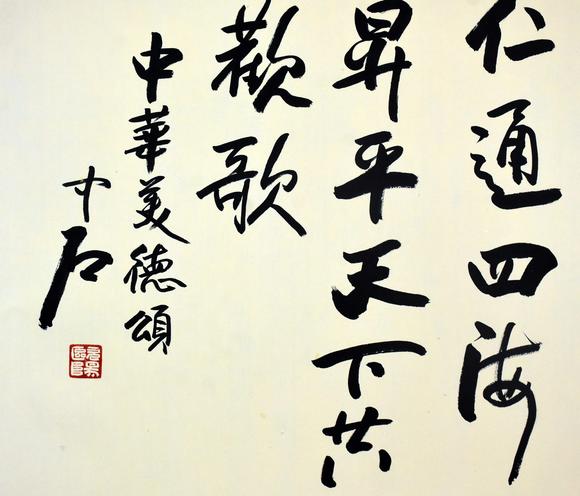 仁通四海
昇平天下共
歡歌
中華美德頌
中石